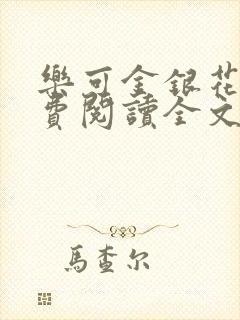 樂可金銀花
費閱讀全文
馬查尔